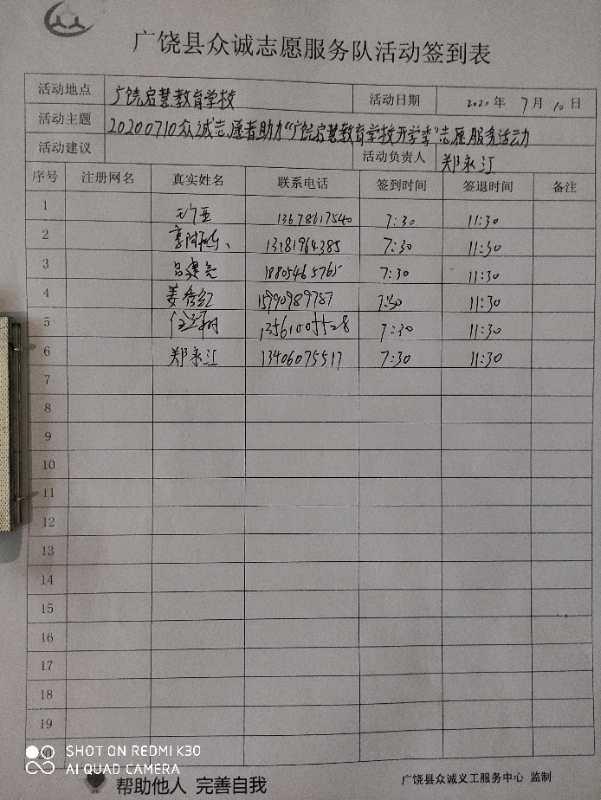 广饶县众诚志愿服务队活动签到表
活动地点 广饶启慧教育学校 活动日期 2020年 7月 10日
活动主题 20200710众诚志愿者助力"广饶启慧教育学校开学季"志愿服务活动
活动建议 活动负责人 郑永江
序号 注册网名 真实姓名 联系电话 签到时间 签退时间 备注
1 13678617540 7:30 11:30
2 13181964385 7:30 11:30
3 吕建尧 18805465765 7:30 11:30
4 姜秀红 15990989787 7:30 11:30
5 7:30 11:30
6 郑永江 13406075517 7:30 11:30
7
8
9
10
11
12
13
14
15
16
17
18
19
SHOT ON REDMI K30
AI QUAD CAMERA
帮助他人 完善自我
广饶县众诚义工服务中心 监制